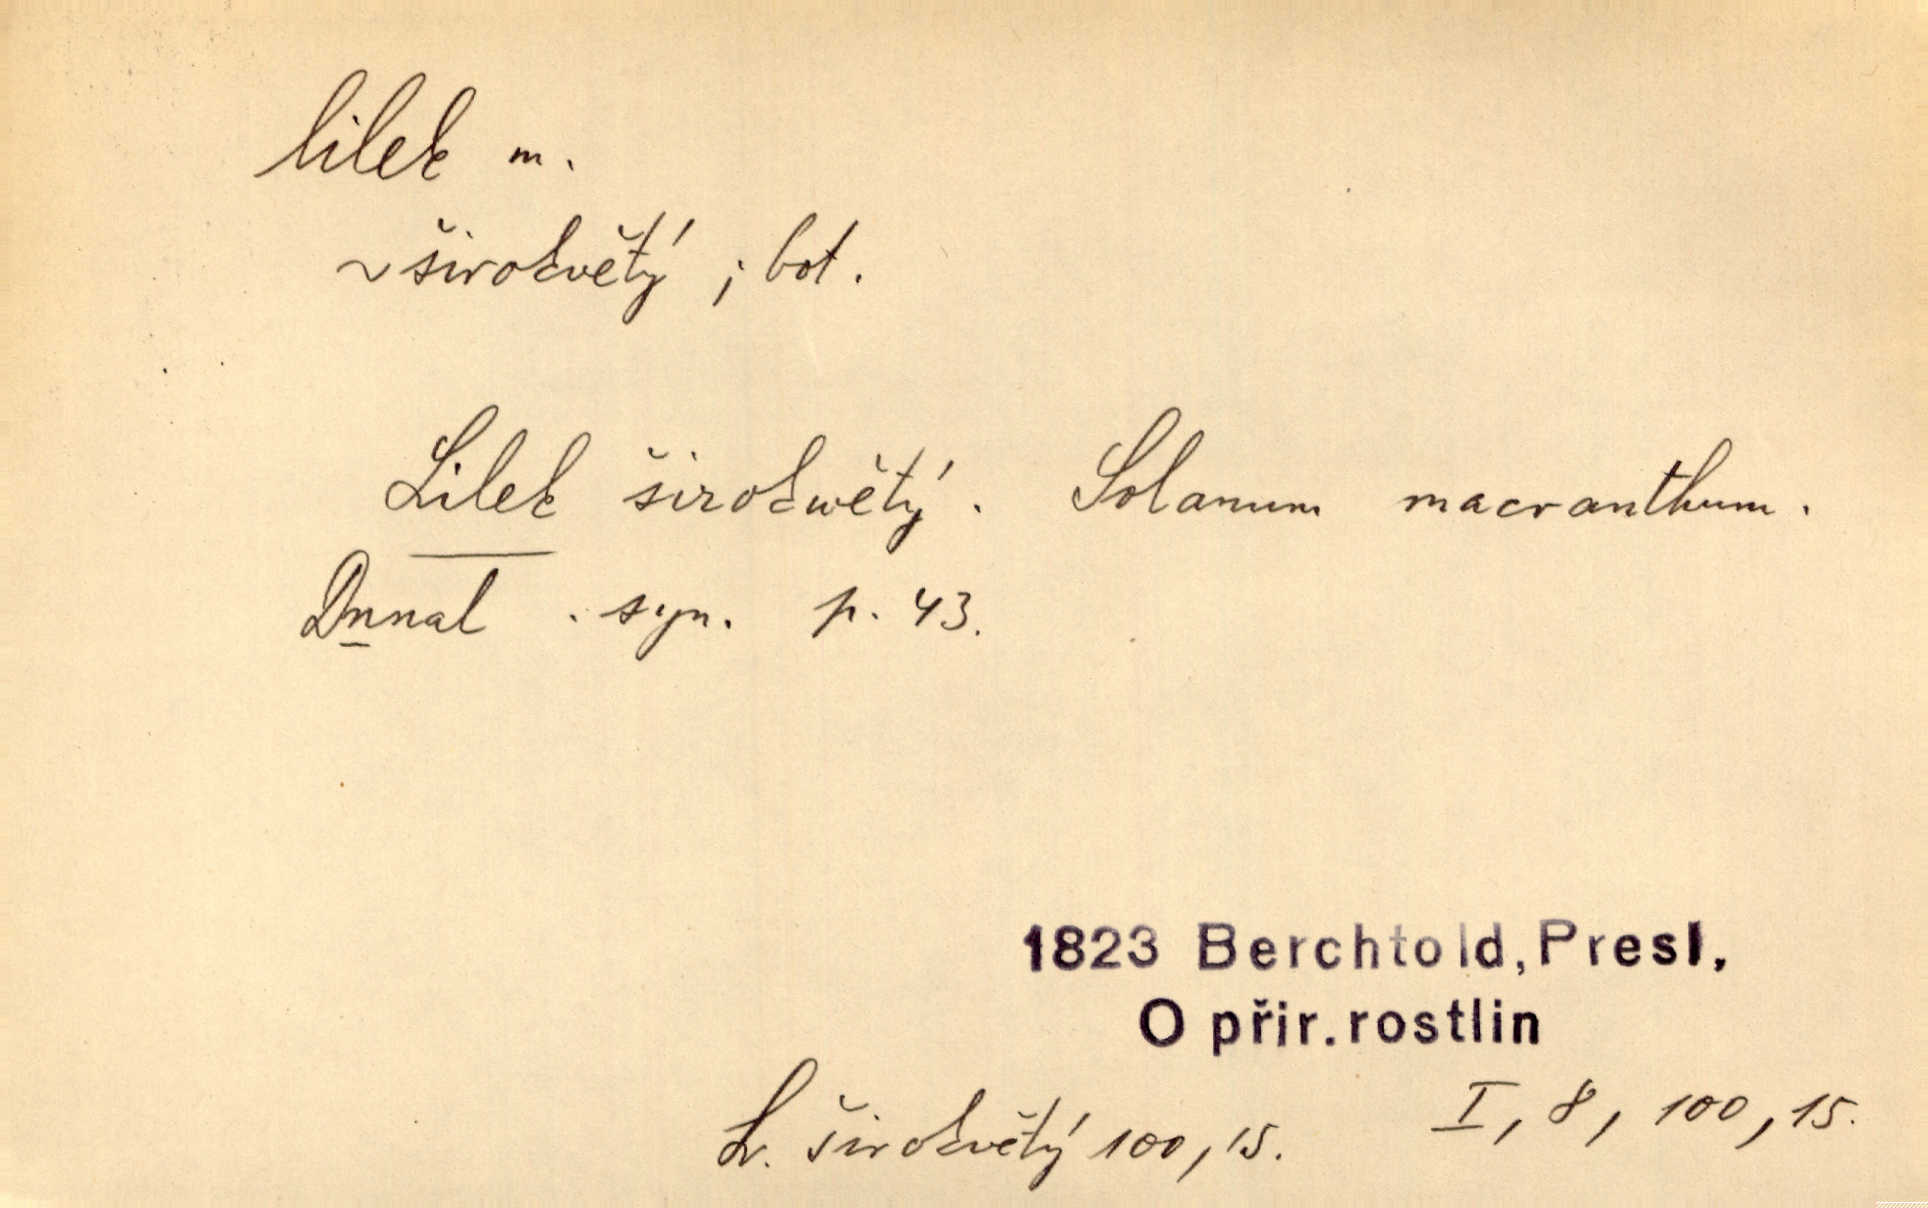 lilek m.
~širokvětý ; bot.
Lilek širokwětý. Solanum macranthum.
Dnnal. syn. p. 43.
1823 Berchtold, Presl,
O přir. rostlin
I, 8, 100, 15.
L. širokvětý 100, 15.